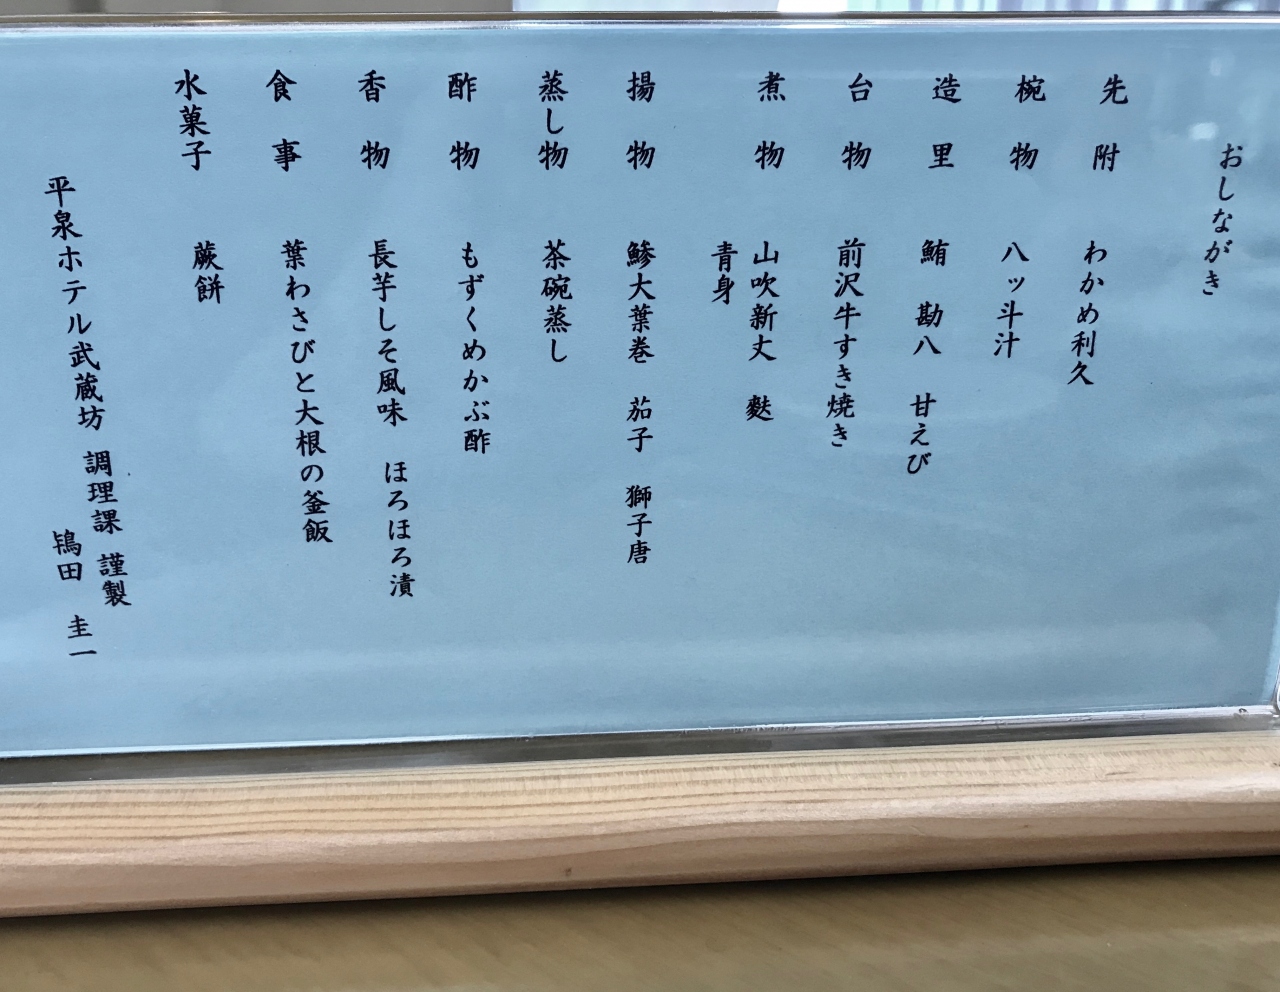 おしながき
先附 わかめ利久
椀物 八ッ斗汁
造里 鮪 勘八 甘えび
台物 前沢牛すき焼き
煮物 山吹新丈 麩
青身
揚物 鯵大葉巻 茄子 獅子唐
蒸し物 茶碗蒸し
酢物 もずくめかぶ酢
香物 長芋しそ風味 ほろほろ漬
食事 葉わさびと大根の釜飯
水菓子 蕨餅
平泉ホテル武蔵坊 調理課 謹製
鴇田 圭一